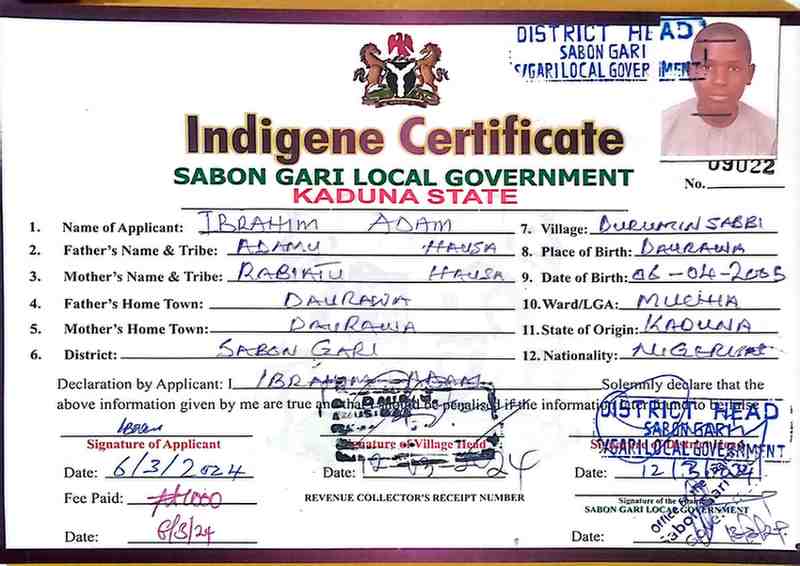 DISTRICT HEAD
SABON GARI
S/GARI LOCAL GOVERNMENT
Indigene Certificate
SABON GARI LOCAL GOVERNMENT
KADUNA STATE
No. 09022
1. Name of Applicant: IBRAHIM ADAM
2. Father's Name & Tribe: ADAMU HAUSA
3. Mother's Name & Tribe: RABIATU HAUSA
4. Father's Home Town: DAURAWA
5. Mother's Home Town: DAURAWA
6. District: SABON GARI
7. Village: DURUMIN SABBI
8. Place of Birth: DAURAWA
9. Date of Birth: 06-04-2005
10. Ward/LGA: MUCHIA
11. State of Origin: KADUNA
12. Nationality: NIGERIAN
Declaration by Applicant: I IBRAHIM ADAM Solemnly declare that the
above information given by me are true and that I should be penalised if the information is found to be false
Signature of Applicant
Signature of Village Head
DISTRICT HEAD
SABON GARI
S/GARI LOCAL GOVERNMENT
Date: 6/3/2024
Date:
Date: 12/3/2024
Fee Paid: ₦1000
REVENUE COLLECTOR'S RECEIPT NUMBER
Signature of the
SABON GARI LOCAL GOVERNMENT
Office of the
Sabon Gari
Date: 6/3/24
Date: